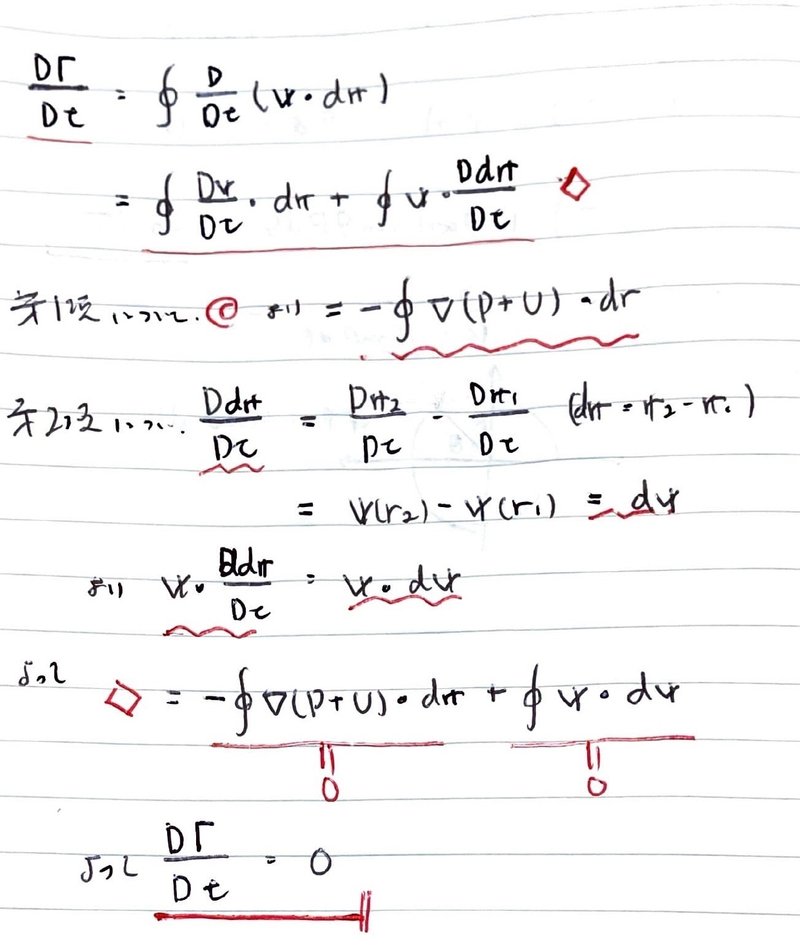 DΓ/Dt = ∮ D/Dt (𝕧・d𝕣)
= ∮ D𝕧/Dt・d𝕣 + ∮ 𝕧・Dd𝕣/Dt ◇
第1項について、© より = -∮ ∇(P+U)・dr
第2項について、 Dd𝕣/Dt = D𝕣₂/Dt - D𝕣₁/Dt (d𝕣 = 𝕣₂-𝕣₁)
= 𝕧(r₂) - 𝕧(r₁) = d𝕧
より 𝕧・Dd𝕣/Dt = 𝕧・d𝕧
よって ◇ = -∮ ∇(P+U)・d𝕣 + ∮ 𝕧・d𝕧
|| ||
0 0
よって DΓ/Dt = 0